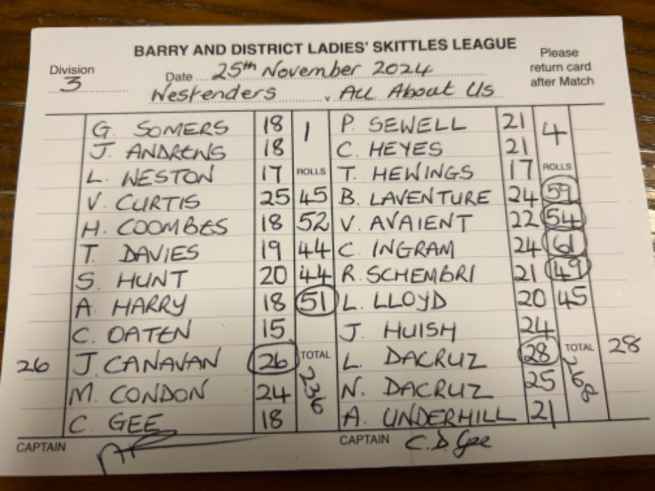 BARRY AND DISTRICT LADIES' SKITTLES LEAGUE
Please return card after Match
Division 3
Date 25th November 2024
Westenders v All About Us
G. SOMERS 18 1 P. SEWELL 21 4
J. ANDREWS 18 C. HEYES 21
L. WESTON 17 ROLLS T. HEWINGS 17 ROLLS
V. CURTIS 25 45 B. LAVENTURE 24 59
H. COOMBES 18 52 V. AVAIENT 22 54
T. DAVIES 19 44 C. INGRAM 24 61
S. HUNT 20 44 R. SCHEMBRI 21 49
A HARRY 18 51 L. LLOYD 20 45
C. OATEN 15 J. HUISH 24
26 J. CANAVAN 26 TOTAL L. DACRUZ 28 TOTAL 28
M. CONDON 24 236 N. DACRUZ 25 268
C. GEE 18 A. UNDERHILL 21
CAPTAIN CAPTAIN C.D. Gee